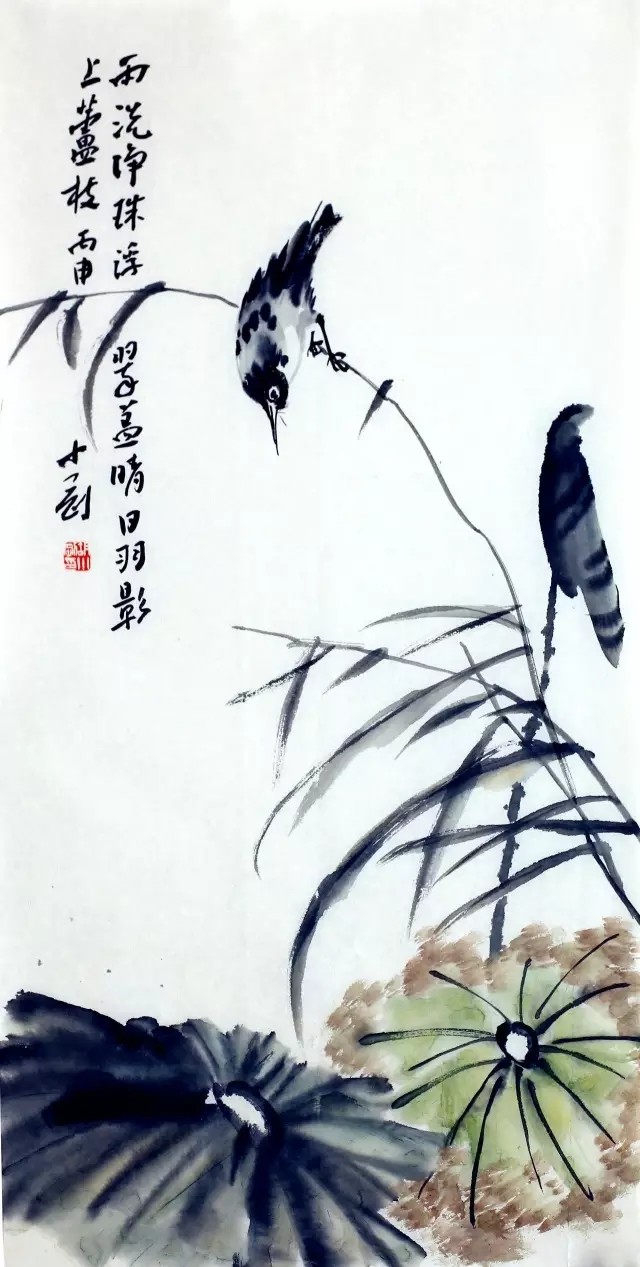 雨洗净珠浮翠盖晴日羽影
上蘆枝丙申